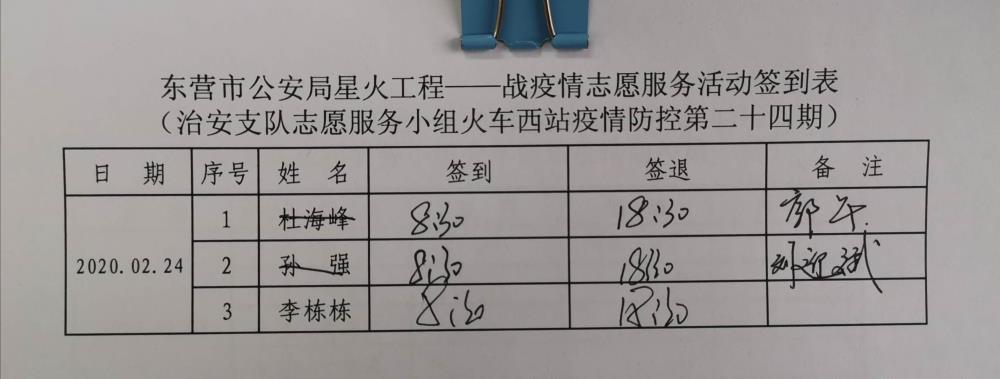 东营市公安局星火工程——战疫情志愿服务活动签到表
（治安支队志愿服务小组火车西站疫情防控第二十四期）
日 期 序号 姓 名 签到 签退 备 注
1 杜海峰 8:30 18:30 郭午
2020.02.24 2 孙 强 8:30 18:30
3 李栋栋 8:30 18:30